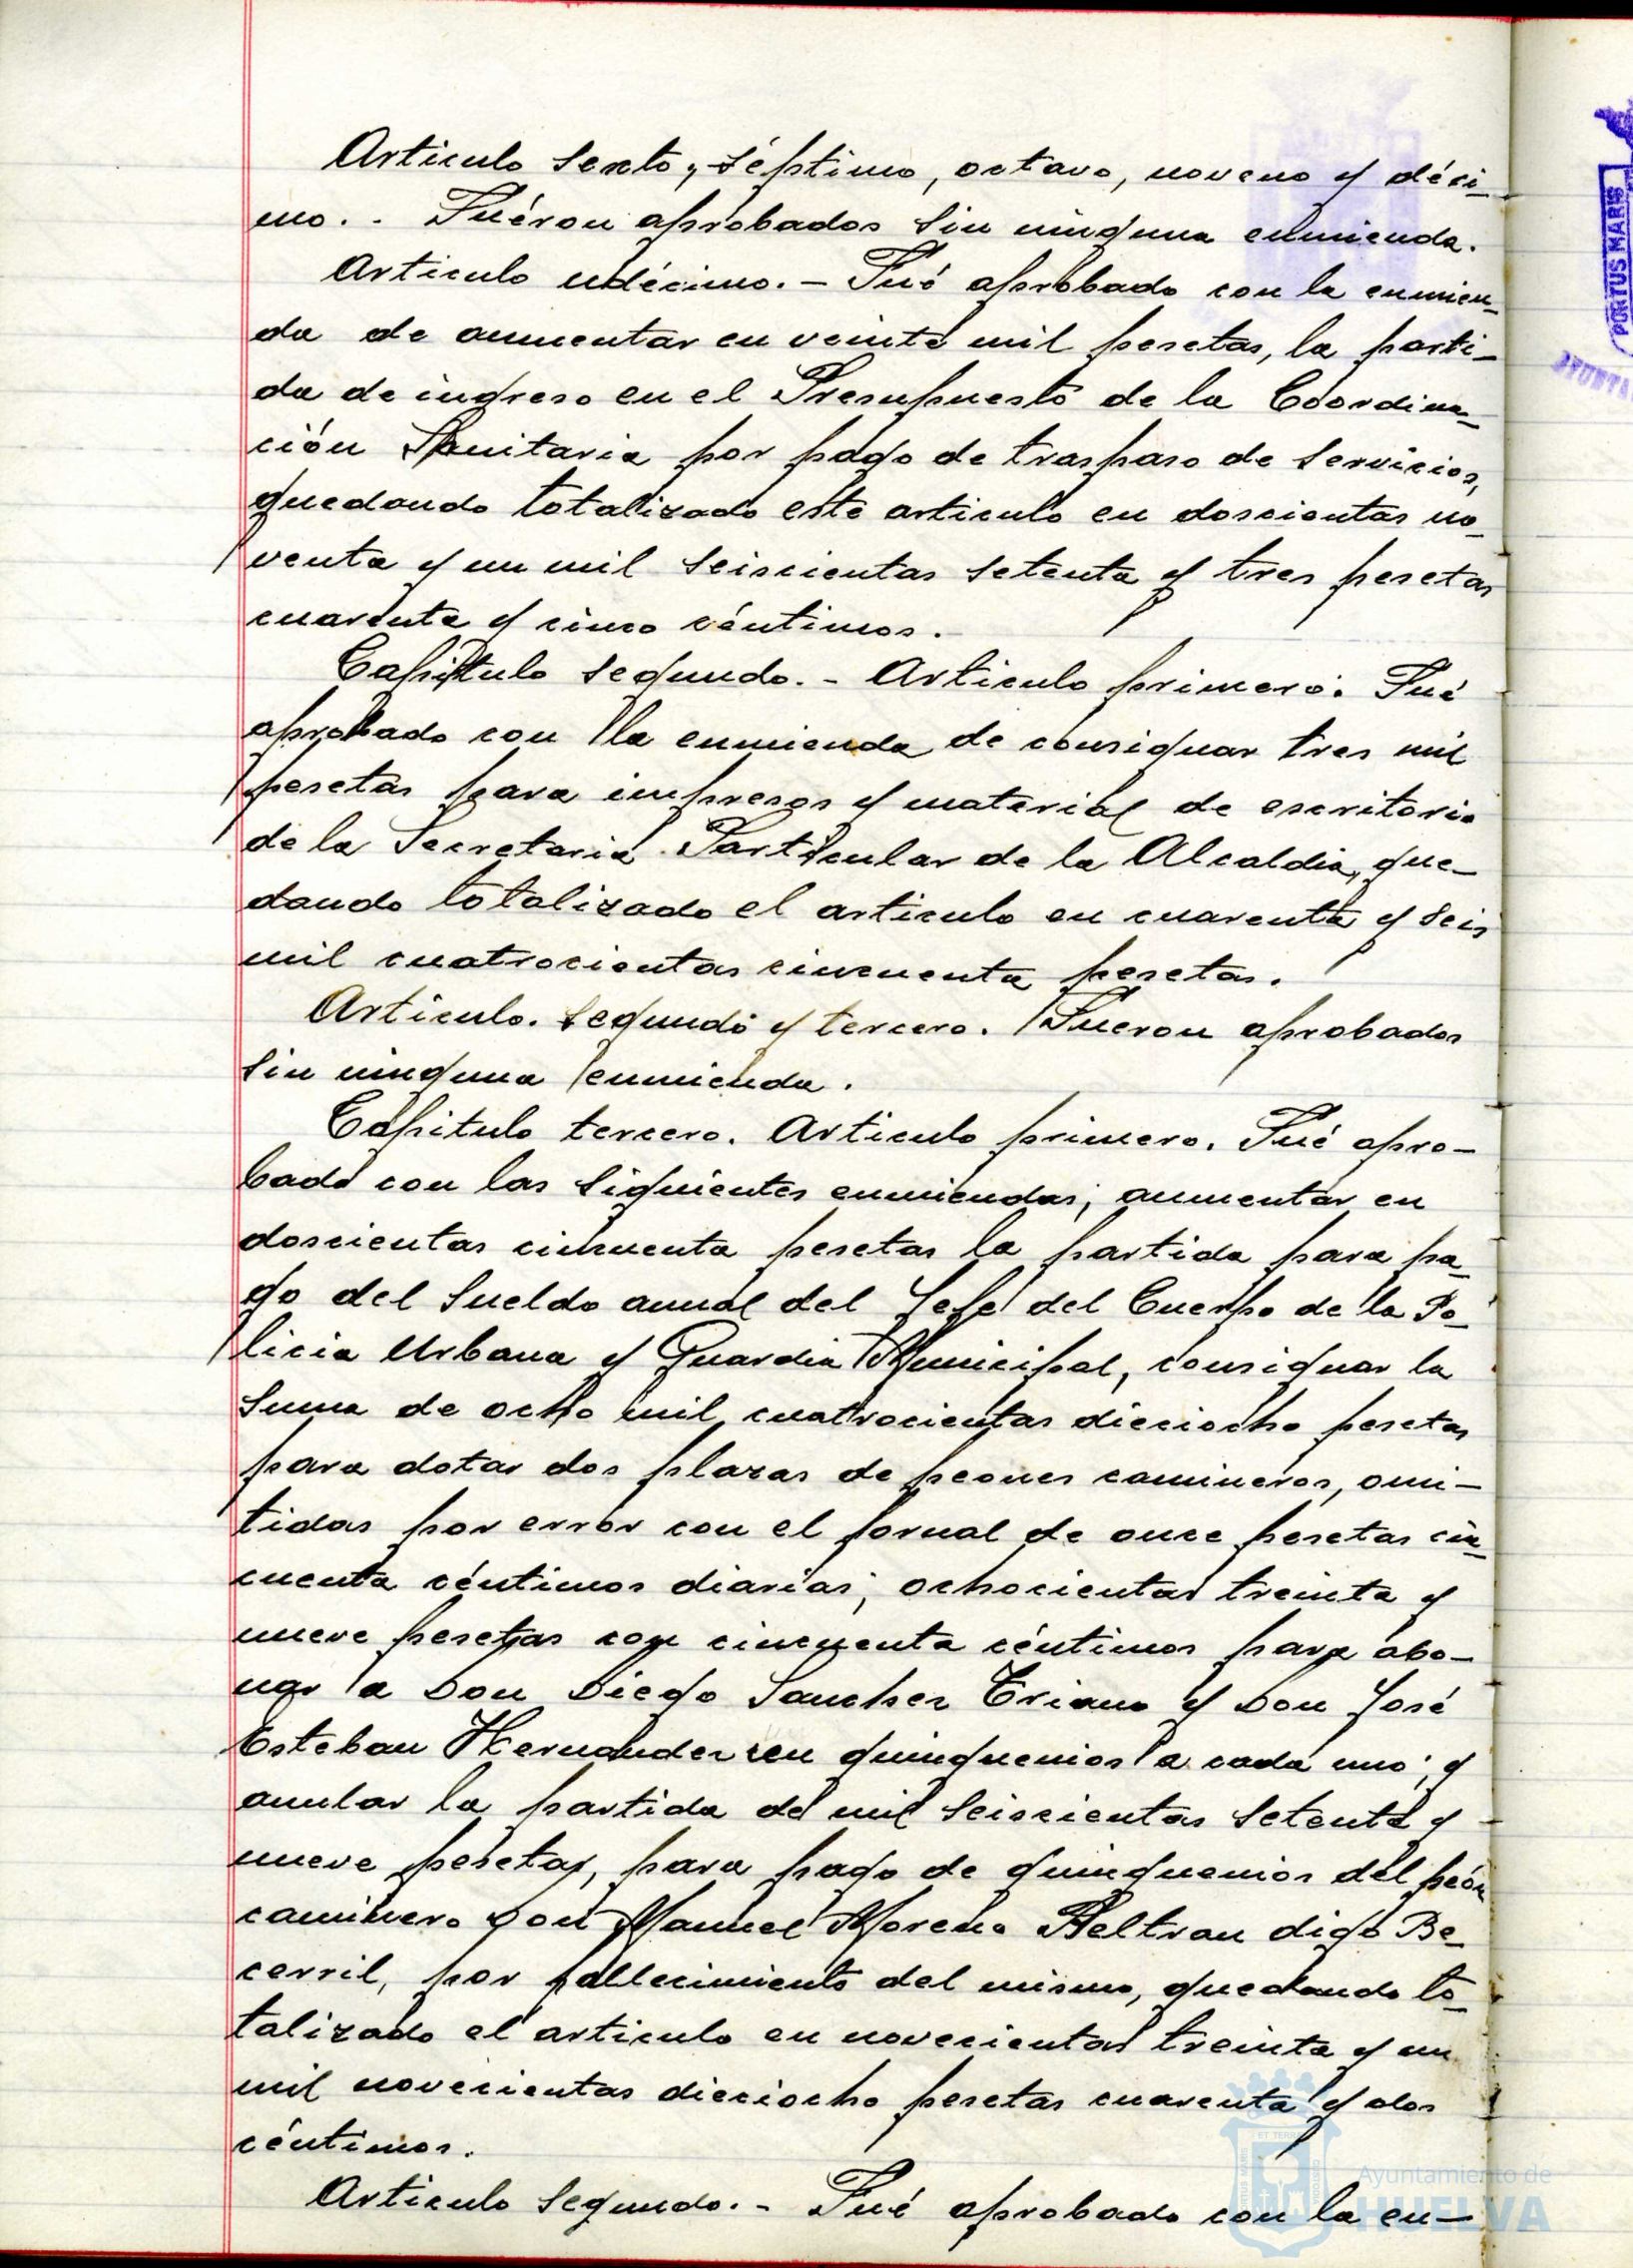 Articulo sexto, séptimo, octavo, noveno y déci-
mo.- Fuéron aprobados sin ninguna enmienda.
Articulo undécimo.- Fué aprobado con la enmien-
da de aumentar en veinte mil pesetas, la parti-
da de ingreso en el Presupuesto de la Coordina-
ción Sanitaria por pago de traspaso de servicios,
quedando totalizado este articulo en doscientas no-
venta y un mil seiscientas setenta y tres pesetas
cuarenta y cinco céntimos.
Capitulo segundo.- Articulo primero. Fué
aprobado con la enmienda de consignar tres mil
pesetas para impresos y material de escritorio
de la Secretaria Particular de la Alcaldia, que-
dando totalizado el articulo en cuarenta y seis
mil cuatrocientas cincuenta pesetas.
Articulo. segundo y tercero. Fueron aprobados
sin ninguna enmienda.
Capitulo tercero. Articulo primero. Fué apro-
bado con las siguientes enmiendas; aumentar en
doscientas cincuenta pesetas la partida para pa-
go del sueldo anual del Jefe del Cuerpo de la Po-
licia Urbana y Guardia Municipal, consignar la
suma de ocho mil cuatrocientas dieciocho pesetas
para dotar dos plazas de peones camineros, omi-
tidas por error con el jornal de once pesetas cin-
cuenta céntimos diarias; ochocientas treinta y
nueve pesetas con cincuenta céntimos para abo-
nar a Don Diego Sanchez Triano y Don José
Esteban Hernandez en quinquenios a cada uno; y
anular la partida de mil seiscientas setenta y
nueve pesetas, para pago de quinquenios del peón
caminero Don Manuel Moreno Beltran digo Be-
cerril, por fallecimiento del mismo, quedando to-
talizado el articulo en novecientas treinta y un
mil novecientas dieciocho pesetas cuarenta y dos
céntimos.
Articulo segundo.- Fué aprobado con la en-
PORTUS MARIS
AYUNTA
Ayuntamiento de
HUELVA